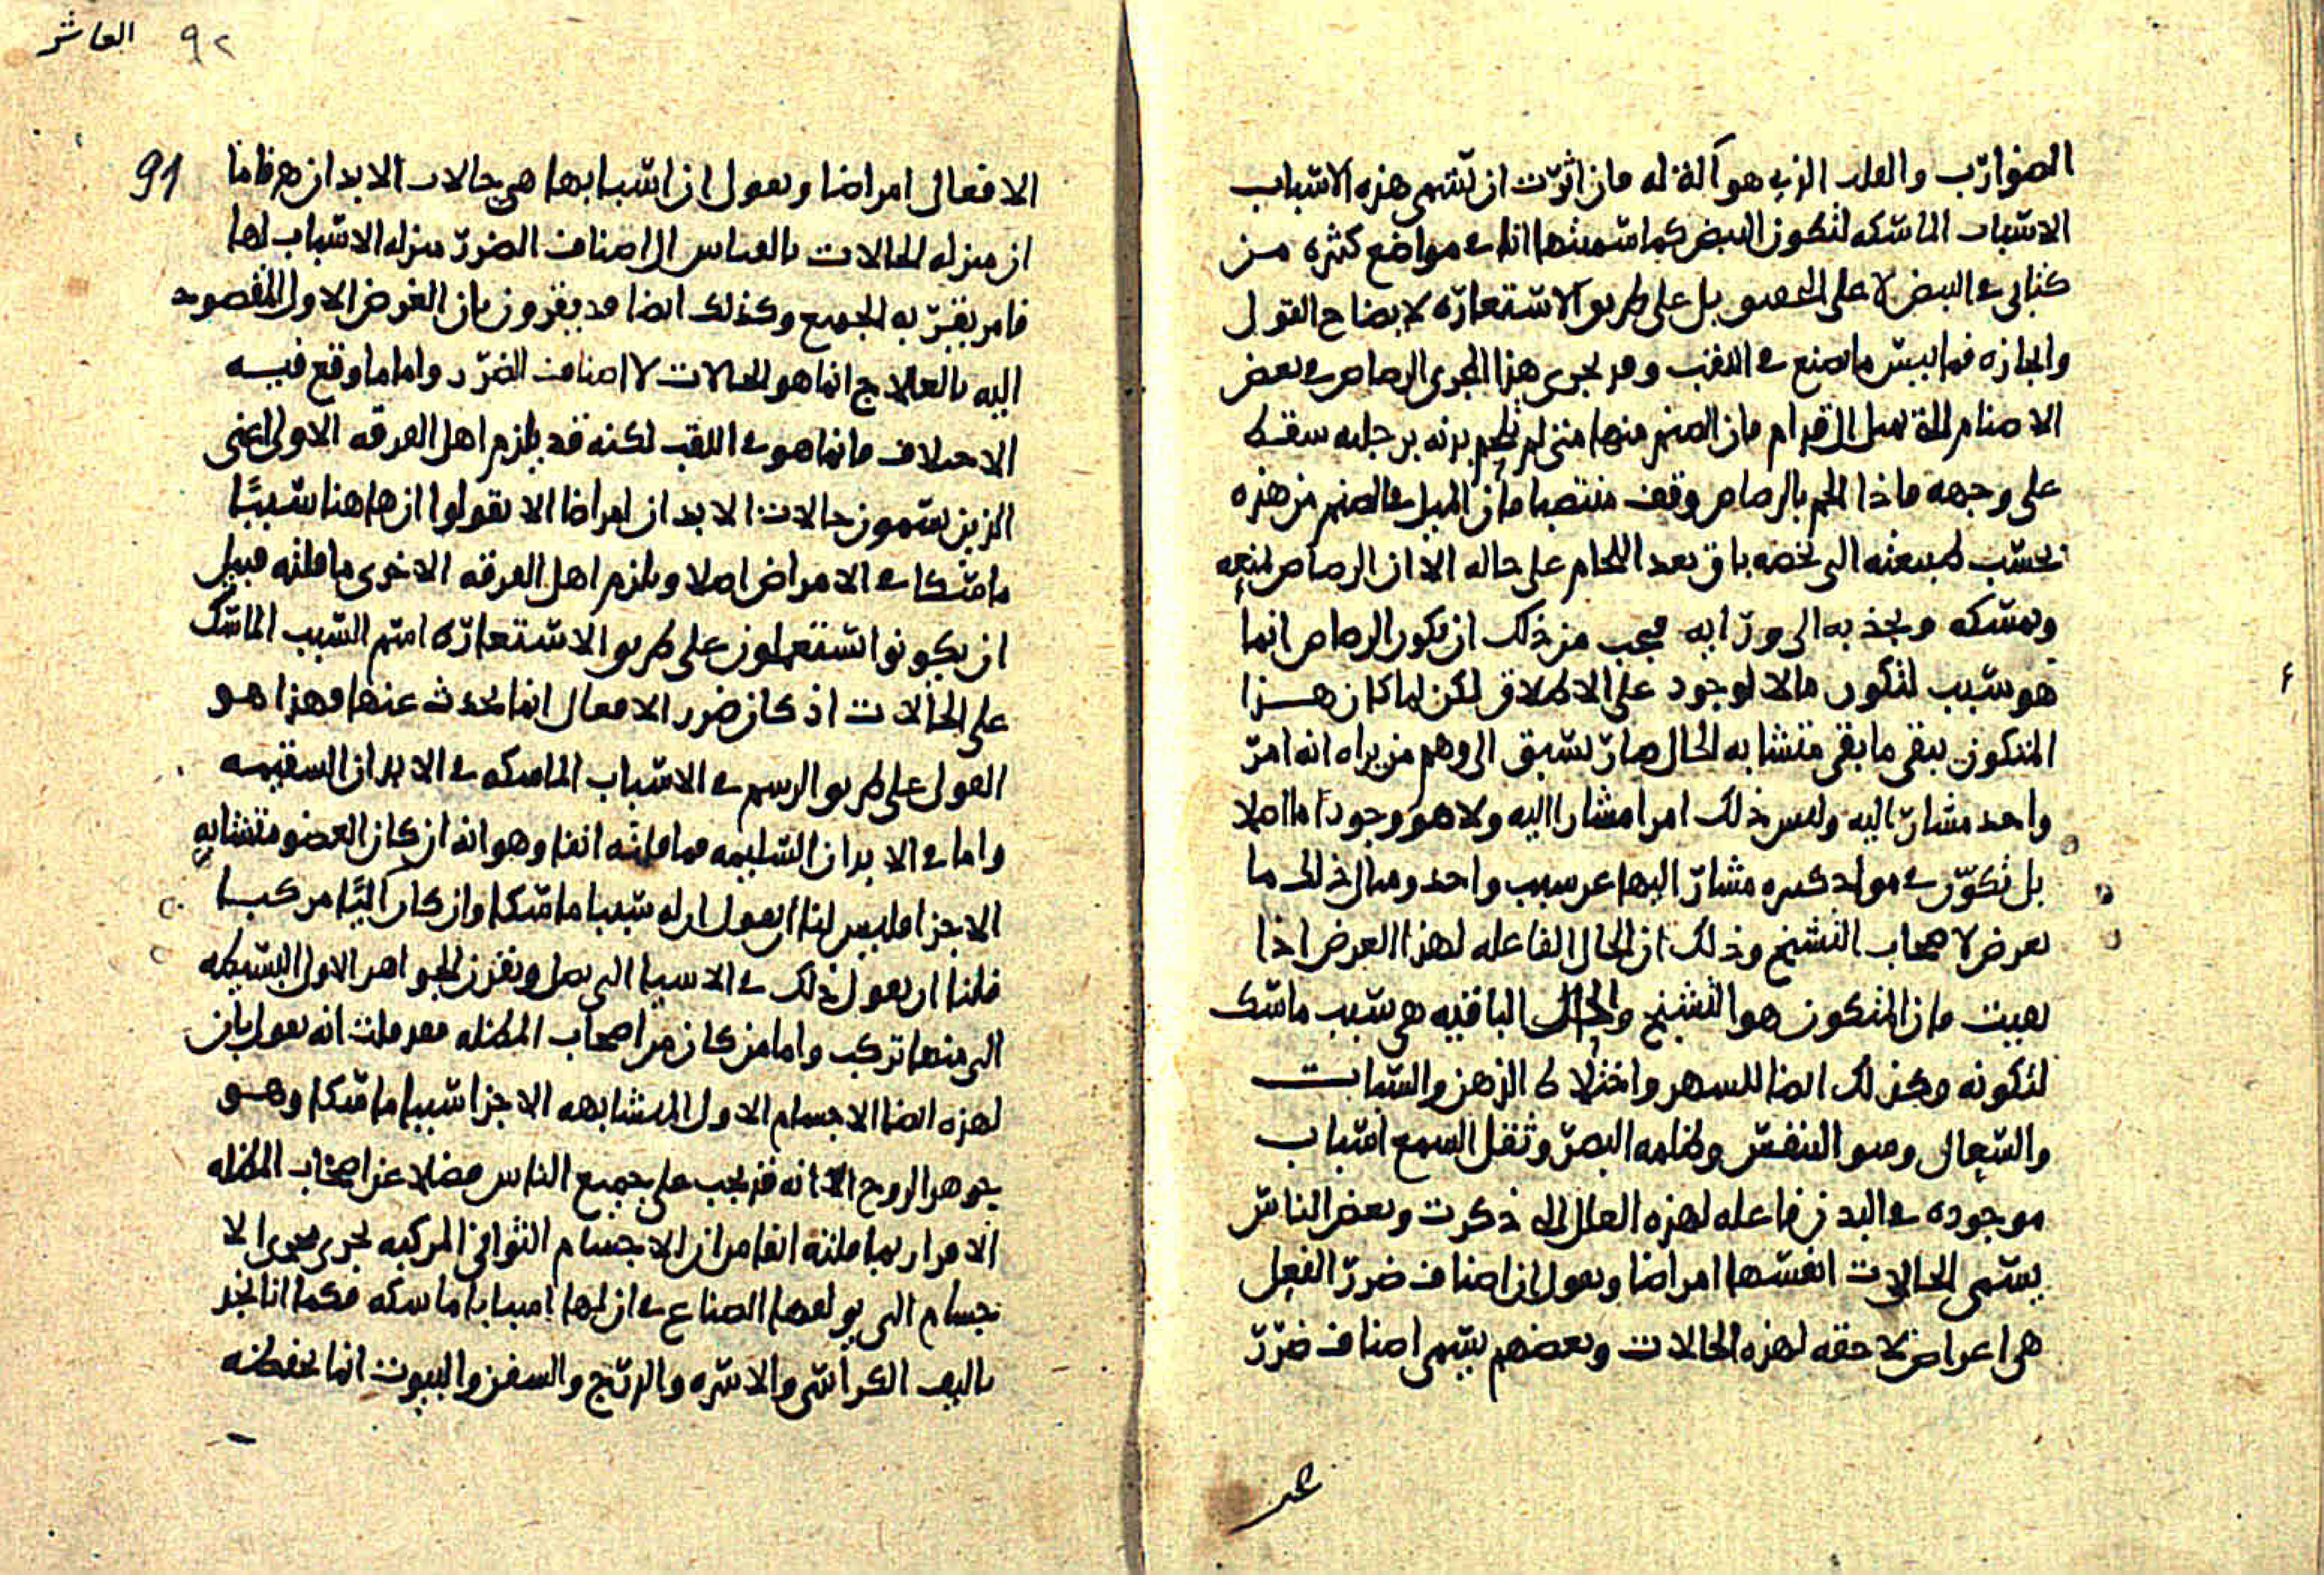 الضوارب والقلب الذي هو آلة له فان اثرت ان تسمى هذه الاسباب
الاسباب الماسكه لتكون النبض كما سميتها انا في مواضع كثيره من
كتابى في النبض لا على التحقيق بل على طريق الاستعاره لايضاح القول
والمجازه فما ببيس ما تصنع في اللقب وقد يجرى هذا المجرى الرصاص في بعض
الاصنام التي تميل الى قدام فان الصنم منها متى لم يلحم بدنه برجليه سقط
على وجهه فاذا الحم بالرصاص وقف منتصبا فان الميل في الصنم من هذه
بحسب طبيعته التى تخصه باق بعد اللحام على حاله الا ان الرصاص يمنعه
ويمسكه ويجذبه الى ورايه فيجب من ذلك ان يكون الرصاص انما
هو سبب لتكون ما لا لوجود على الاطلاق لكن لما كان هذا
المتكون يبقى ما بقى متشابه الحال صار يسبق الى وهم من يراه انه امر
واحد مشار اليه وليس ذلك امرا مشارا اليه ولا هو وجود ما اصلا
بل تكون في مواد كثيره مشار اليها عن سبب واحد ومثال ذلك ما
يعرض لاصحاب التشنج وذلك ان الحال الفاعله لهذا العرض اذا
بقيت فان المتكون هو التشنج والحال الباقيه هى سبب ماسك
لتكونه وكذلك ايضا للسهر واختلاط الذهن والسبات
والسعال وسو التنفس وظلمه البصر وثقل السمع اسباب
موجوده في البدن فاعله لهذه العلل التي ذكرت وبعض الناس
يسمى الحالات انفسها امراضا ويقول ان اصناف ضرر الفعل
هى اعراض لاحقه لهذه الحالات وبعضهم يسمى اصناف ضرر
عد
العاشر ٩٢
91
الافعال امراضا ويقول ان اسبابها هى حالات الابدان هذه فاما
ان منزله الحالات بالقياس الى اصناف الضرر منزله الاسباب لها
فامر يقر به الجميع وكذلك ايضا قد يقرون بان الغرض الاول المقصود
اليه بالعلاج انما هو الحالات لا اصناف الضرر واما ما وقع فيه
الاختلاف فانما هو في اللقب لكنه قد يلزم اهل الفرقه الاولى اعنى
الذين يسمون حالات الابدان امراضا الا يقولوا ان هاهنا سببًا
ماسكا في الامراض اصلا ويلزم اهل الفرقه الاخرى ما قلته قبيل
ان يكونوا يستعملون على طريق الاستعاره اسم السبب الماسك
على الحالات اذ كان ضرر الافعال انما يحدث عنها وهذا هو
القول على طريق الرسم في الاسباب الماسكه في الابدان السقيمه
واما في الابدان السليمه فما قلته انفا وهو انه ان كان العضو متشابه
الاجزا فليس لنا ان نقول ان له سببا ماسكا وان كان اليًا مركبا
فلنا ان نقول ذلك في الاشيا التى تصل وتقرن الجواهر الاول البسيطه
التى منها تركب واما من كان من اصحاب المظله فقد قلت انه يقول بان
لهذه ايضا الاجسام الاول المتشابهه الاجزا سببا ماسكا وهو
جوهر الروح الا انه قد يجب على جميع الناس فضلا عن اصحاب المظله
الاقرار بما قلته انفا من ان الاجسام الثوانى المركبه تجرى مجرى الا
جسام التى يولفها الصناع في ان لها اسبابا ماسكه فكما انا نجد
تاليف الكراسى والاسره والرتج والسفن والبيوت انما تحفظه